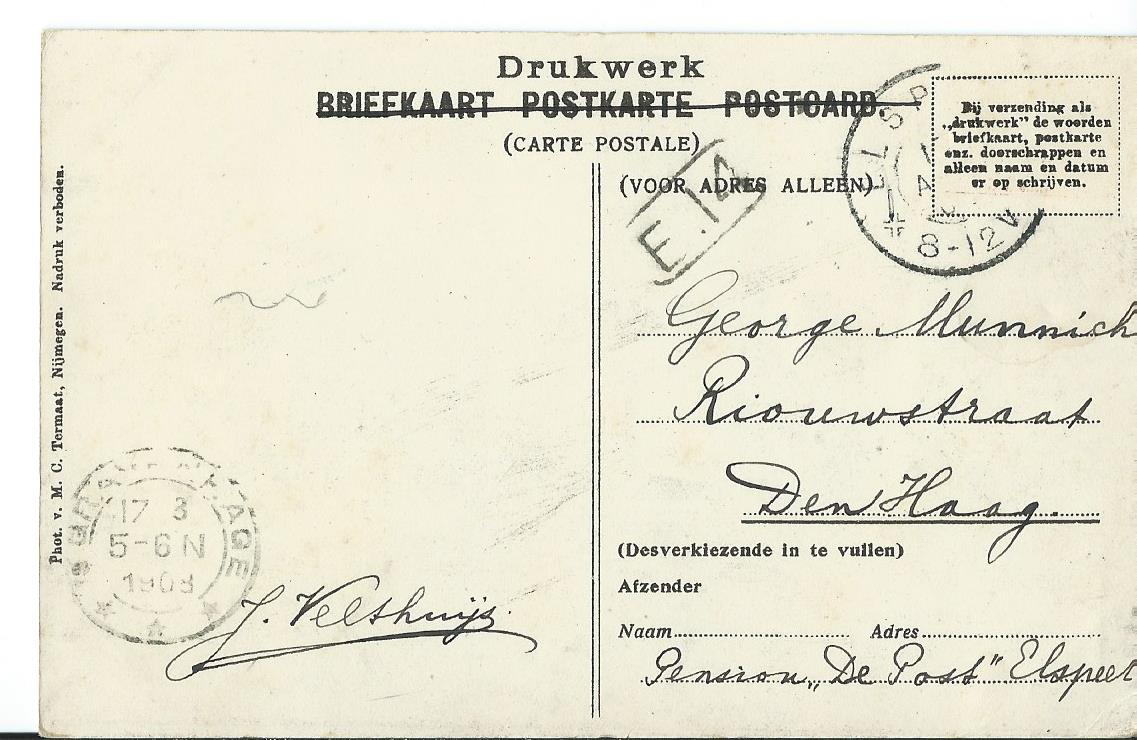 Drukwerk
BRIEFKAART POSTKARTE POSTCARD.
(CARTE POSTALE)
Bij verzending als
„drukwerk” de woorden
briefkaart, postkarte
enz. doorschrappen en
alleen naam en datum
er op schrijven.
8-12V
E.14
(VOOR ADRES ALLEEN)
George Munnich
Riouwstraat
Den Haag.
(Desverkiezende in te vullen)
Afzender
Naam Adres
Pension „De Post" Elspeet
Phot. v. M. C. Termaat, Nijmegen. Nadruk verboden.
'S GRAVENHAGE
17 3
5-6 N
1908
J. Velthuijs.